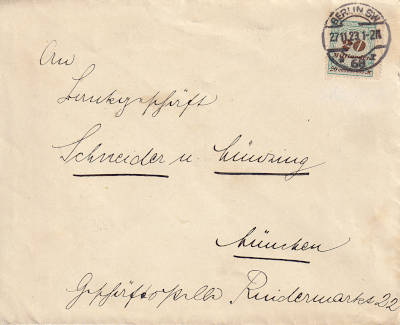 BERLIN SW
27.11.23.1-2N
* 68 *
An
Bankgeschäft
Schneider u. Münzing
München
Geschäftsstelle Rindermarkt 22